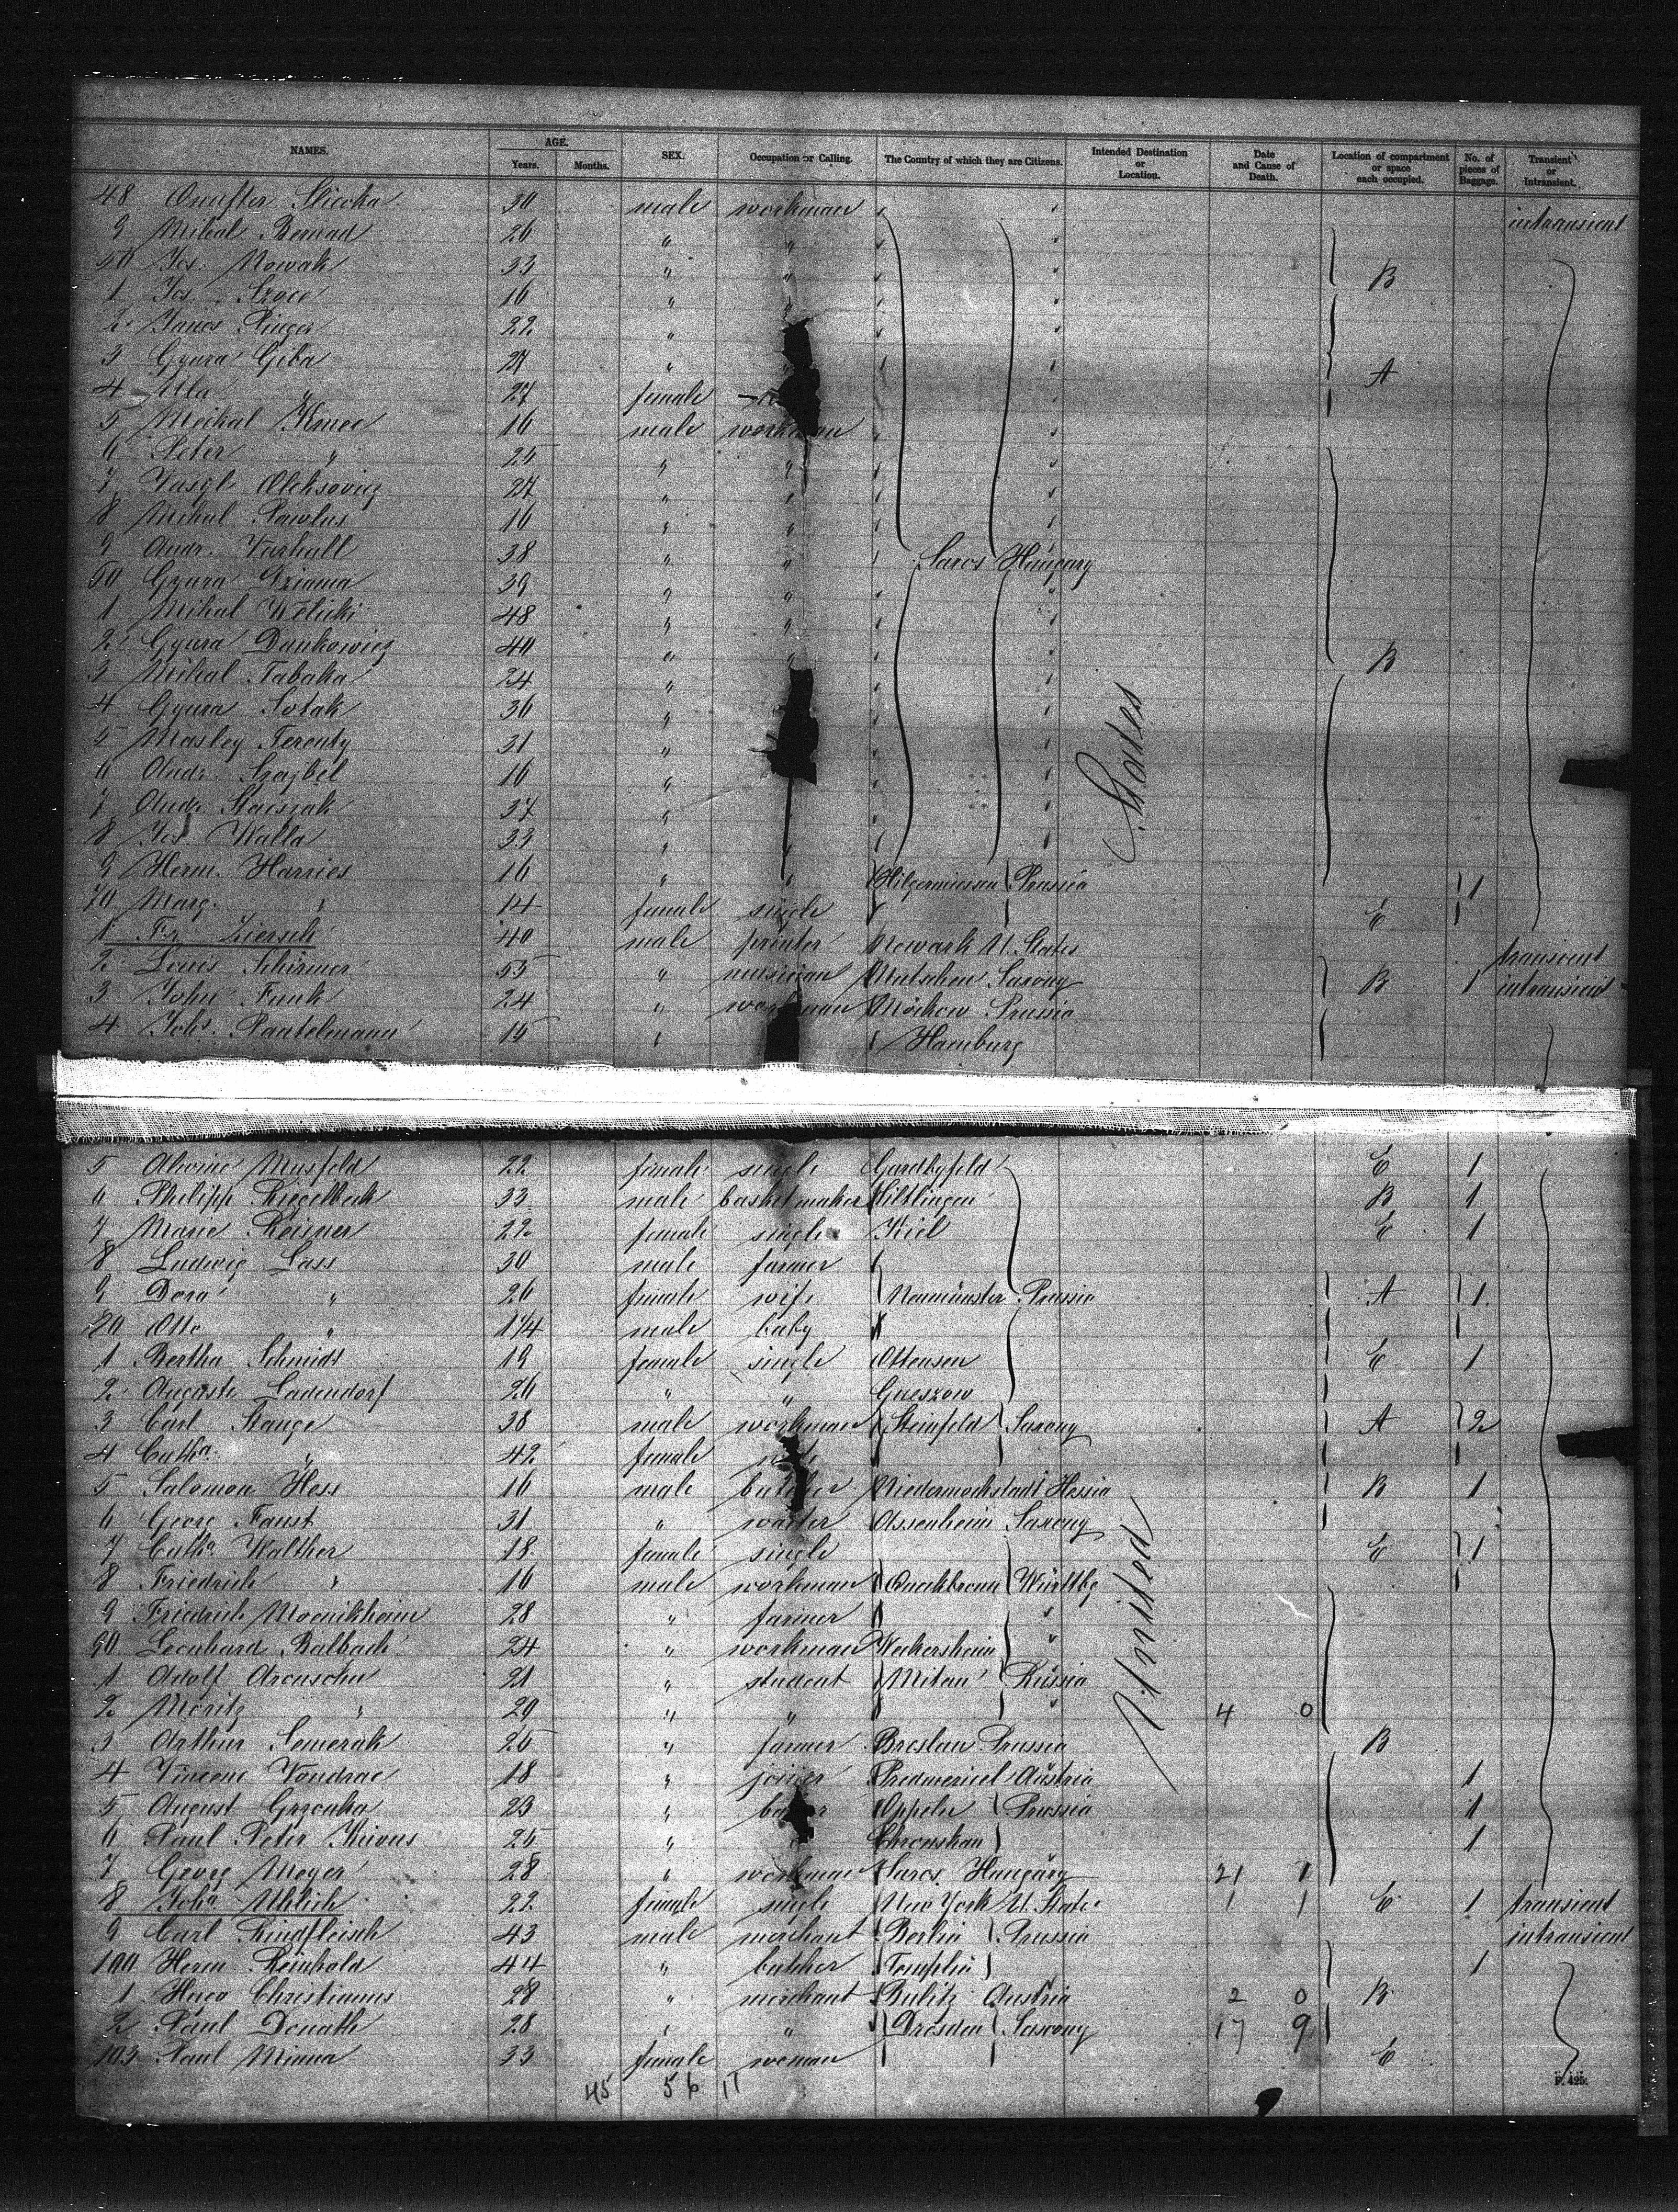 NAMES. AGE. Years. Months. SEX. Occupation or Calling. The Country of which they are Citizens. Intended Destination or Location. Date and Cause of Death. Location of compartment or space each occupied. No. of pieces of Baggage. Transient or Intransient.
48 Onufter 30 male workman intransient
9 Mihal Bernad 26 " "
50 Jos. Nowak 33 " " B
1 Jos. 16 " "
2 Janos Ringer 22 "
3 Gyura Giba 27 " A
4 Ula " 27 female
5 Michal Kmec 16 male workman
6 Peter " 25 " "
7 Vasyl Oleksovicz 27 " "
8 Mihal Pawlus 16 " "
9 Andr. Varhall 38 " " Saros Hungary
60 Gyura 39 " "
1 Mihal Welicki 48 " "
2 Gyura Dankowicz 40 " " B
3 Mihal Tabaka 24 "
4 Gyura Sotak 36 "
5 Masley Terenty 31 "
6 Andr. Szajbel 16 "
7 Andr. 37 "
8 Jos. Walla 33 "
9 Herm. Harries 16 " " Prussia 1
70 Marg. " 14 female single E
1 Fr. Ziersch 40 male printer Newark U. States transient
2 Louis Schirmer 55 " musician Mutschen Saxony B 1 intransient
3 John Funk 24 " workman Prussia
4 Johs. Pantelmann 15 " Hamburg
5 Alwine Musfeld 22 female single E 1
6 Philipp 33 male basketmaker B 1
7 Marie Reisner 22 female single Kiel E 1
8 Ludwig Lass 30 male farmer
9 Dora " 26 female wife Neumünster Prussia A 1
80 Otto " 1 1/4 male baby
1 Bertha Schmidt 19 female single Ottensen E 1
2 Auguste Ladendorf 26 " "
3 Carl Stange 38 male workman Steinfeld Saxony A 2
4 Catha. " 42 female
5 Salomon Hess 16 male butcher Niedermockstadt Hessia B 1
6 Georg Faust 31 " waiter Assenheim Saxony
7 Catha. Walther 18 female single E 1
8 Friedrich " 16 male workman Württbg
9 Friedrich 28 " farmer "
90 Leonhard Balbach 24 " workman Weikersheim "
1 Adolf 21 " student Mitau Russia
2 Moritz " 20 " " " 4 0
3 Arthur Semerak 25 " farmer Breslau Prussia B
4 Vincenc Vondrac 18 " joiner Austria 1
5 August 23 " Oppeln Prussia 1
6 Paul Peter 25 " 1
7 Georg Meyer 28 " workman Saros Hungary 21 1
8 Joha. Uhlich 22 female single New York U. States 1 1 E 1 transient
9 Carl Rindfleisch 43 male merchant Berlin Prussia intransient
100 Herm. Reinhold 44 " butcher Templin " 1
1 Hugo Christianus 28 " merchant Austria 2 0 B
2 Paul Donath 28 " " Dresden Saxony 17 9
103 Paul Minna 33 female woman E
United States
45 56 11